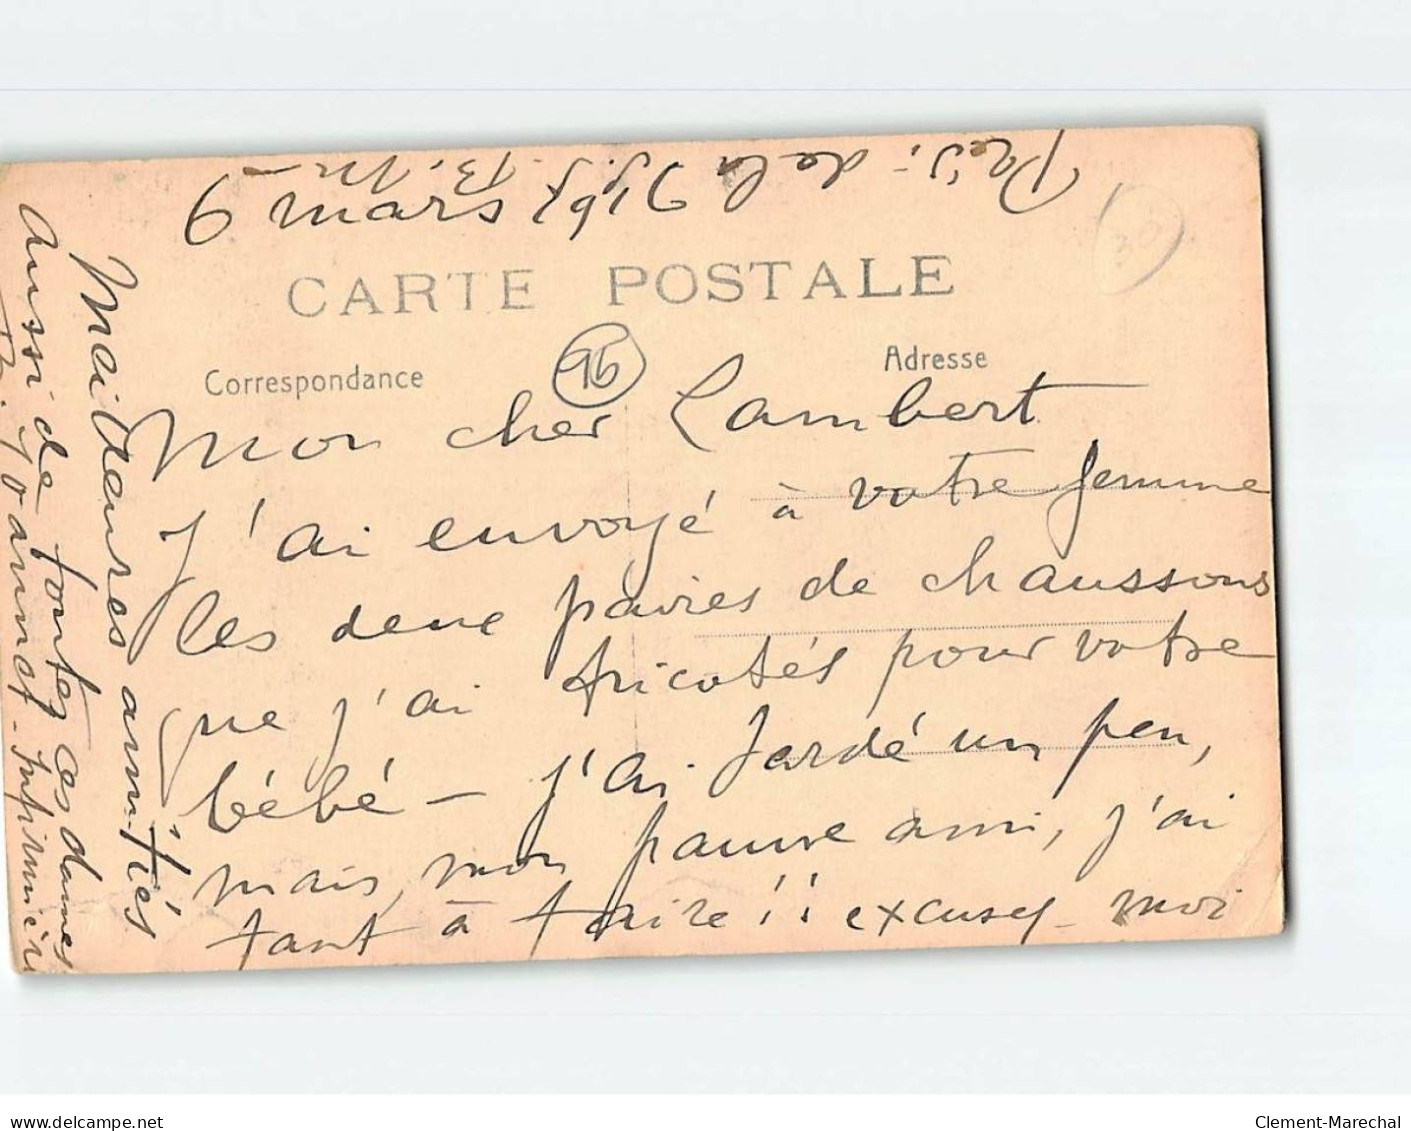 9 mars 1916
CARTE POSTALE
Correspondance
Adresse
95
30
Mon cher Lambert
J'ai envoyé à votre femme
les deux paires de chaussons
que j'ai tricotés pour votre
bébé – j'ai tardé un peu,
mais, mon pauvre ami, j'ai
tant à faire !! excusez-moi
Meilleures amitiés
aussi de toutes ces dames
Infirmière
Prés. de la
delcampe.net
Clement-Marechal